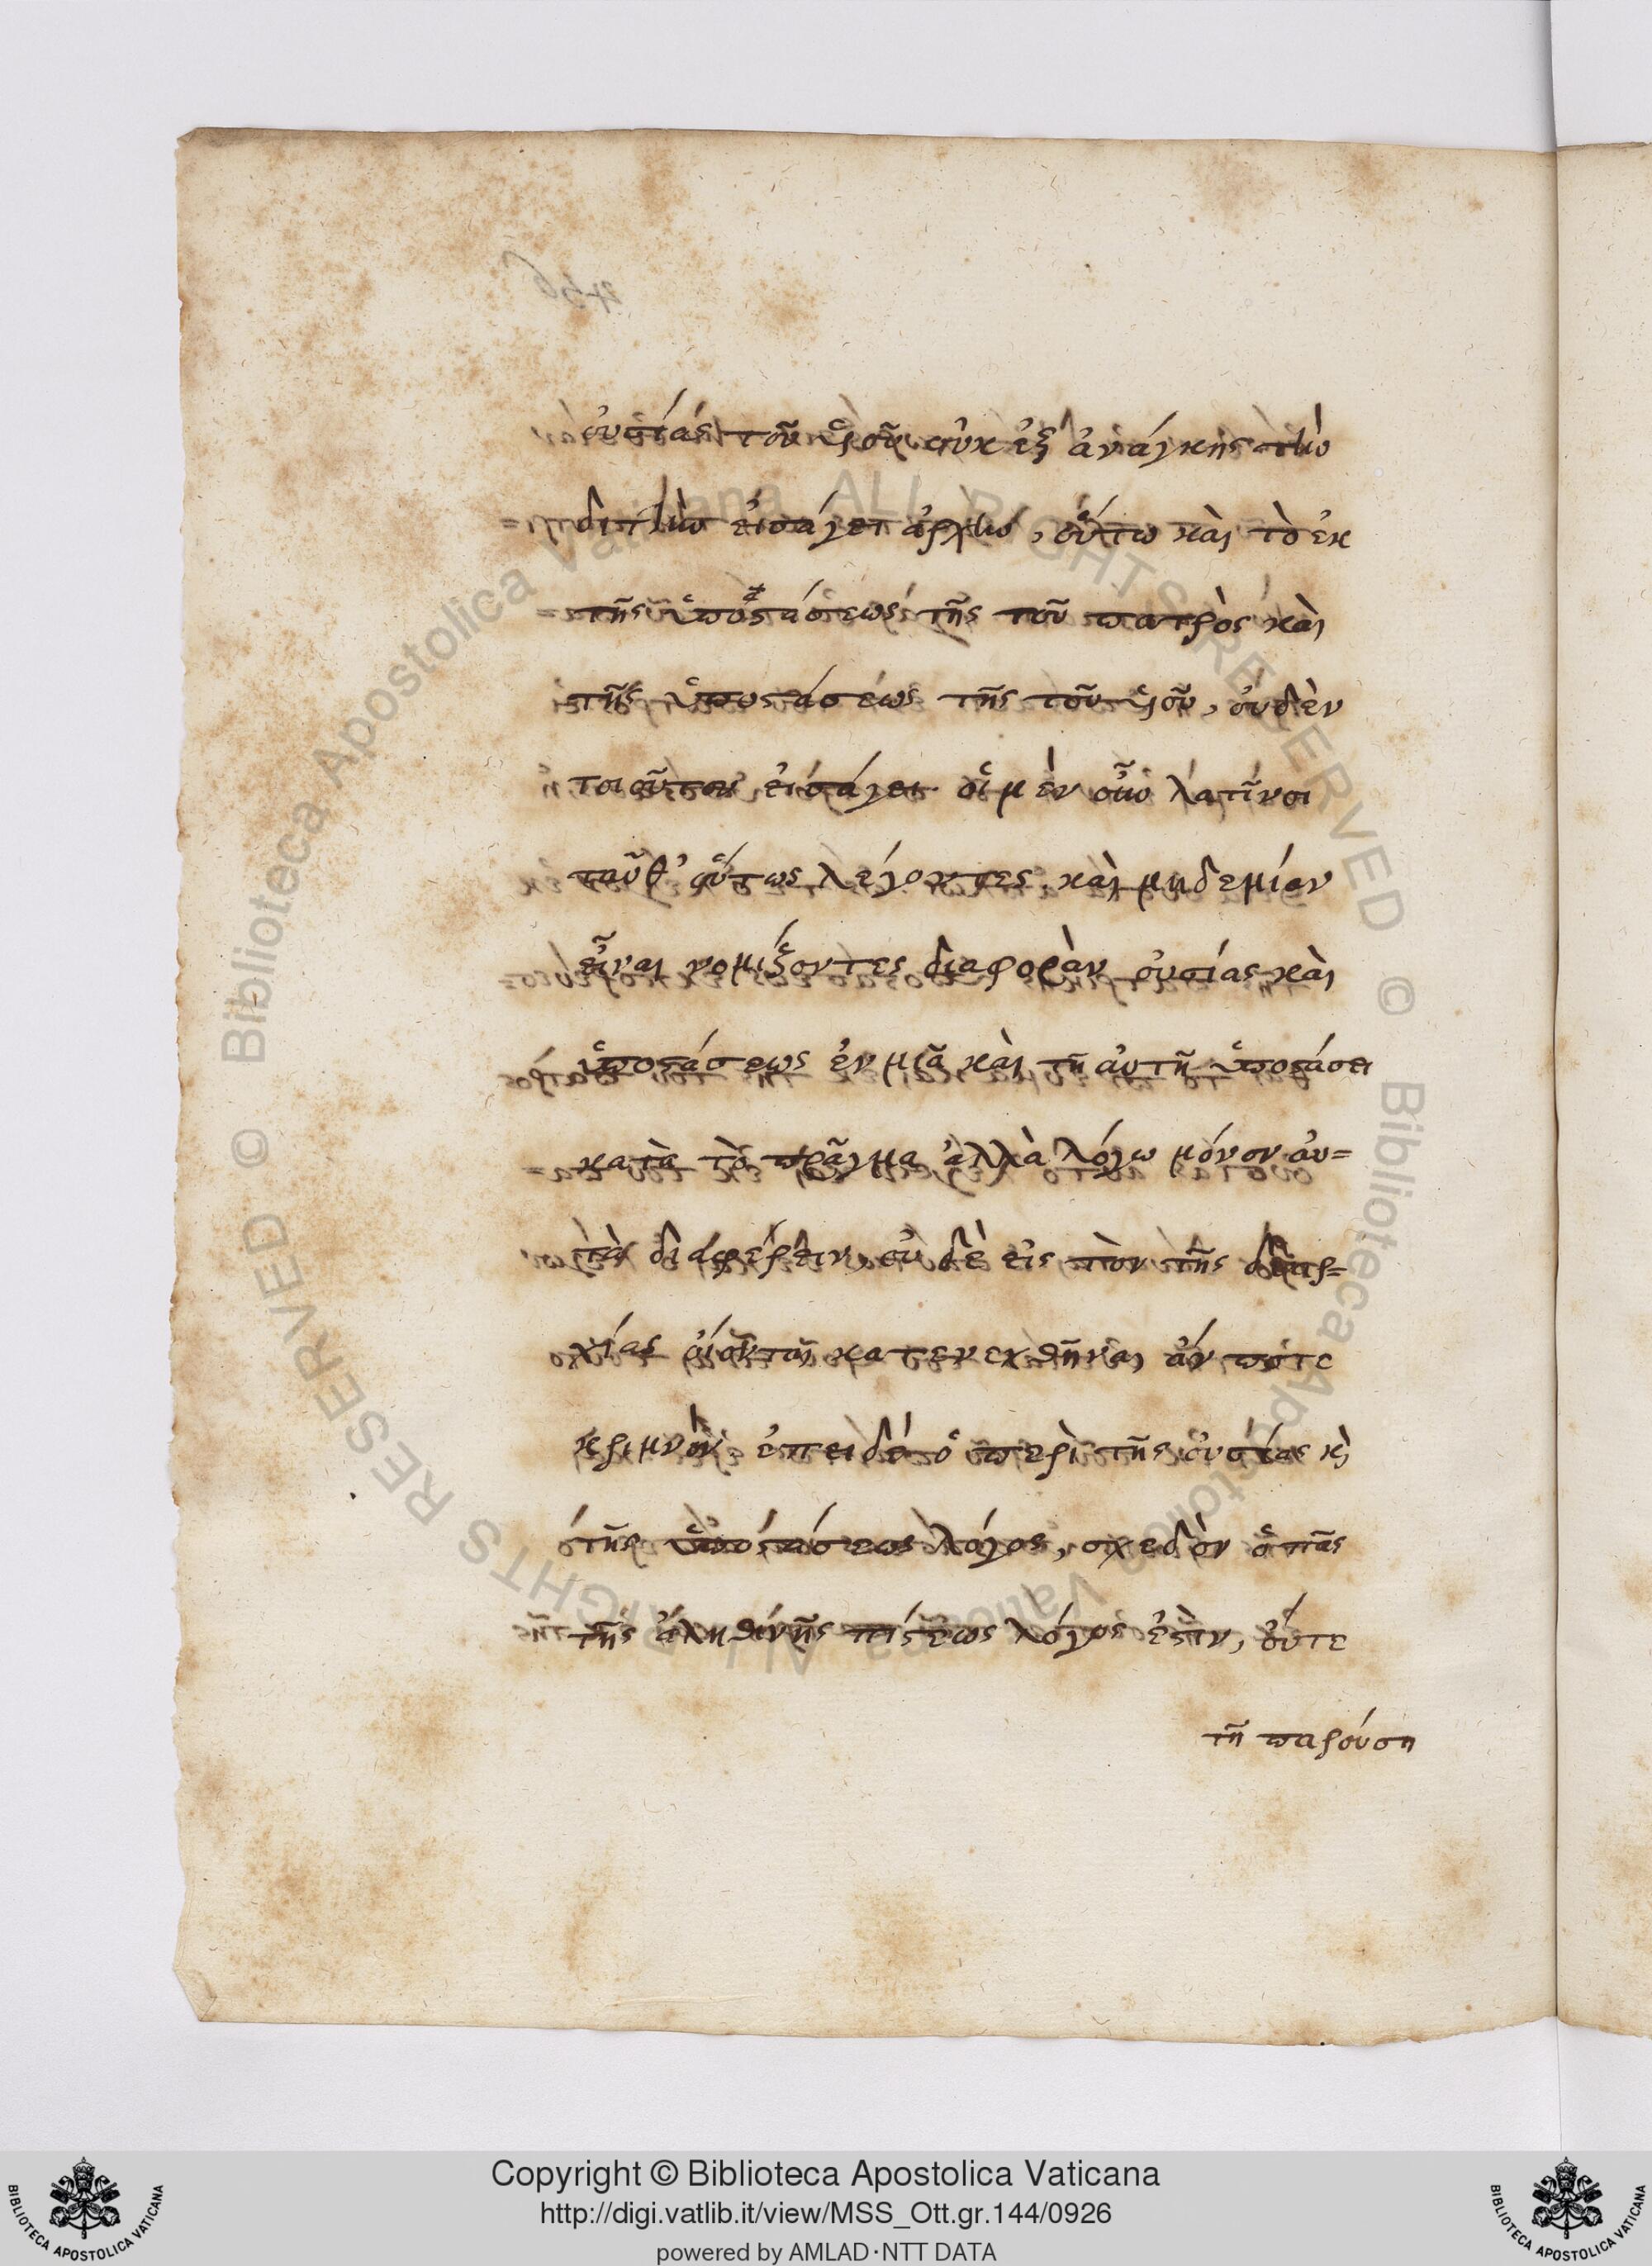 οὐσίας τοῦ υἱοῦ οὐκ ἐξ ἀνάγκης τὴν
διττὴν εἰσάγει ἀρχὴν, οὕτω καὶ τὸ ἐκ
τῆς ὑποστάσεως τῆς τοῦ πατρὸς καὶ
τῆς ὑποστάσεως τῆς τοῦ υἱοῦ, οὐδὲν
τοιοῦτον εἰσάγει· οἱ μὲν οὖν λατῖνοι
ταῦθ' οὕτως λέγοντες, καὶ μηδεμίαν
εἶναι νομίζοντες διαφορὰν οὐσίας καὶ
ὑποστάσεως ἐν μιᾶ καὶ τῆ αὐτῆ ὑποστάσει
κατὰ τὸ πρᾶγμα ἀλλὰ λόγω μόνον αὐ=
τὰ διαφέρειν, οὐδὲ εἰς τὸν τῆς διαρ=
χίας οἴονται κατενεχθῆναι ἄν ποτε
κριμνὸν ἐπειδὲ ὁ περὶ τῆς οὐσίας κὶ
τῆς ὑποστάσεως λόγος, σχεδὸν ὁ πᾶς
τῆς ἀληθινῆς πίστεως λόγος ἐστὶν, οὔτε
τῆ παρούση
Copyright © Biblioteca Apostolica Vaticana
http://digi.vatlib.it/view/MSS_Ott.gr.144/0926
powered by AMLAD·NTT DATA
BIBLIOTECA APOSTOLICA VATICANA
BIBLIOTECA APOSTOLICA VATICANA
© Biblioteca Apostolica Vaticana ALL RIGHTS RESERVED
© Biblioteca Apostolica Vaticana ALL RIGHTS RESERVED